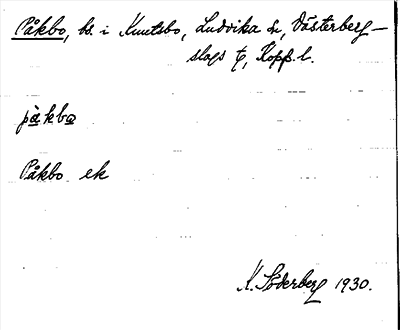 Påkbo, bs. i Knutsbo, Ludvika sn, Västerberg-
slags tg, Kopp. l.
på̀kbo
Påkbo ek
K. Söderberg 1930.